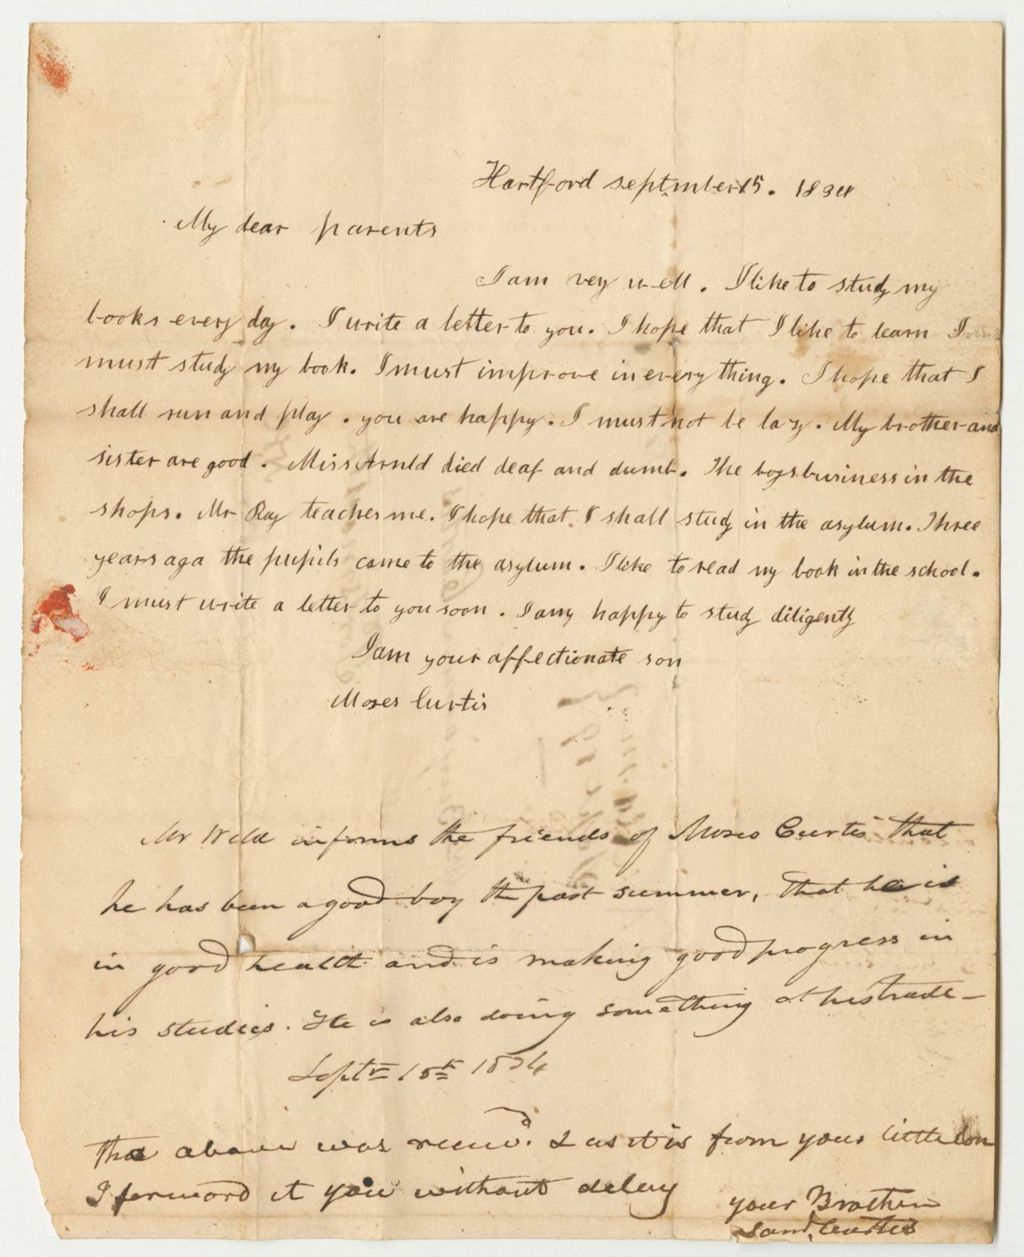 Hartford septmber 15. 1834
My dear parents
I am vey well. I like to study my
books every day. I write a letter to you. I hope that I like to learn I
must study my book. I must improve in every thing. I hope that I
shall run and play. you are happy. I must not be lazy. My brother and
sister are good. Miss Arnld died deaf and dumb. The boys business in the
shops. Mr Ray teaches me. I hope that I shall study in the asylum. Three
years aga the pupils came to the asylum. I like to read my book in the school.
I must write a letter to you soon. I amy happy to study diligently
I am your affectionate son
Moses Curtis
Mr Weld informs the friends of Moses Curtis that
he has been a good boy the past summer, that he is
in good health and is making good progress in
his studies. He is also doing something at his trade—
Septr 15th 1834
The above was receivd. & as it is from your little son
I forward it you without delay
your Brother
Saml. Curtis